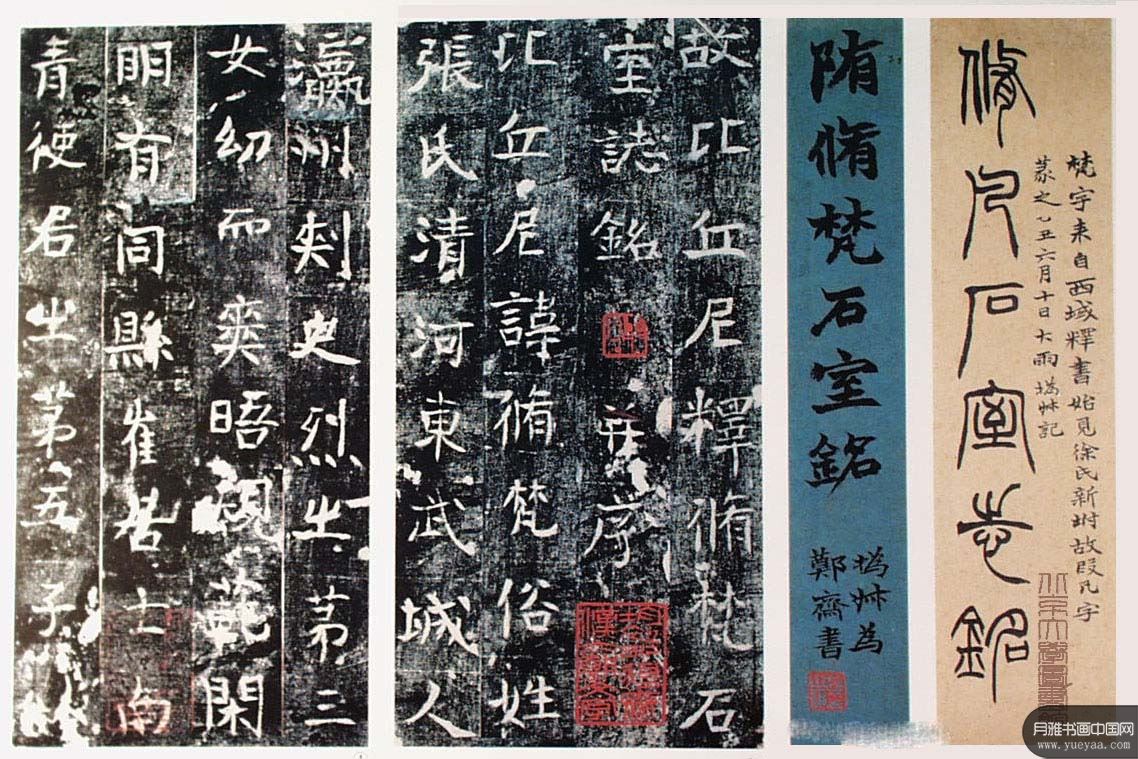 脩凡石室志銘
梵字来自西域釋書始見徐氏新坿故叚凡字
篆之乙丑六月十日大雨撝叔記
隋脩梵石室銘
撝叔為
鄭齋書
故比丘尼釋脩梵石
室誌銘并序
比丘尼諱脩梵俗姓
張氏清河東武城人
瀛州刾史烈之第三
女幼而爽晤規範閑
明有同縣崔居士南
青使君之第五子
月雅书画中国网
www.yueyaa.com